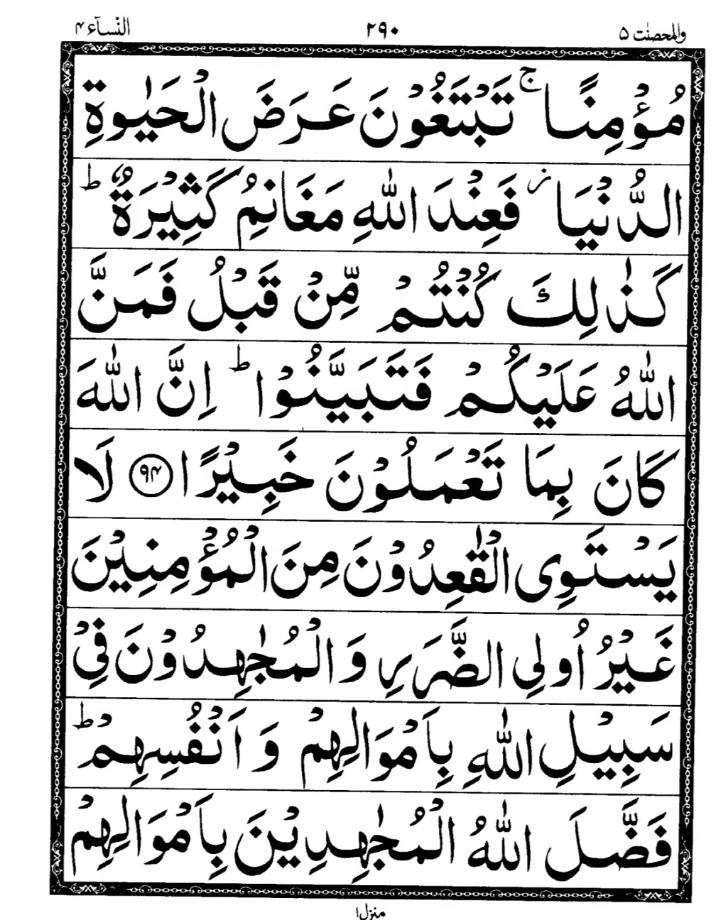 النسآء ۴ ۲۹۰ والمحصنٰت ۵
مُؤْمِنًا ۚ تَبْتَغُوْنَ عَرَضَ الْحَيٰوةِ
الدُّنْيَا ز فَعِنْدَ اللّٰهِ مَغَانِمُ كَثِيْرَةٌ ؕ
كَذٰلِكَ كُنْتُمْ مِّنْ قَبْلُ فَمَنَّ
اللّٰهُ عَلَيْكُمْ فَتَبَيَّنُوْا ؕ اِنَّ اللّٰهَ
كَانَ بِمَا تَعْمَلُوْنَ خَبِيْرًا ﴿۹۴﴾ لَا
يَسْتَوِى الْقٰعِدُوْنَ مِنَ الْمُؤْمِنِيْنَ
غَيْرُ اُولِى الضَّرَرِ وَ الْمُجٰهِدُوْنَ فِيْ
سَبِيْلِ اللّٰهِ بِاَمْوَالِهِمْ وَ اَنْفُسِهِمْ ؕ
فَضَّلَ اللّٰهُ الْمُجٰهِدِيْنَ بِاَمْوَالِهِمْ
منزل ۱